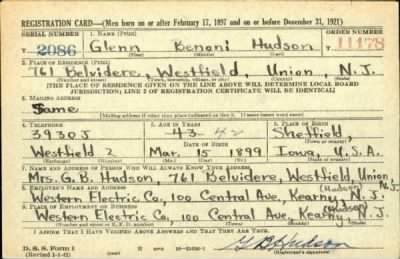 REGISTRATION CARD—(Men born on or after February 17, 1897 and on or before December 31, 1921)
SERIAL NUMBER 1. NAME (Print) ORDER NUMBER
T 2086 Glenn Benoni Hudson 11178
(First) (Middle) (Last)
2. PLACE OF RESIDENCE (Print)
761 Belvidere, Westfield Union, N.J.
(Number and street) (Town, township, village, or city) (County) (State)
[THE PLACE OF RESIDENCE GIVEN ON THE LINE ABOVE WILL DETERMINE LOCAL BOARD
JURISDICTION; LINE 2 OF REGISTRATION CERTIFICATE WILL BE IDENTICAL]
3. MAILING ADDRESS
Same
[Mailing address if other than place indicated on line 2. If same insert word same]
4. TELEPHONE 5. AGE IN YEARS 6. PLACE OF BIRTH
3930J 43 42 Sheffield
DATE OF BIRTH (Town or county)
Westfield 2 Mar. 15 1899 Iowa, U.S.A.
(Exchange) (Number) (Mo.) (Day) (Yr.) (State or country)
7. NAME AND ADDRESS OF PERSON WHO WILL ALWAYS KNOW YOUR ADDRESS
Mrs. G. B. Hudson, 761 Belvidere, Westfield, Union, N.J.
8. EMPLOYER'S NAME AND ADDRESS
Western Electric Co., 100 Central Ave., Kearny, (Hudson) N.J.
9. PLACE OF EMPLOYMENT OR BUSINESS
Western Electric Co., 100 Central Ave., Kearny, (Hudson) N.J.
(Number and street or R. F. D. number) (Town) (County) (State)
I AFFIRM THAT I HAVE VERIFIED ABOVE ANSWERS AND THAT THEY ARE TRUE.
D. S. S. Form 1
(Revised 1-1-42) (over) GPO 16—21630-1 G B Hudson
(Registrant's signature)